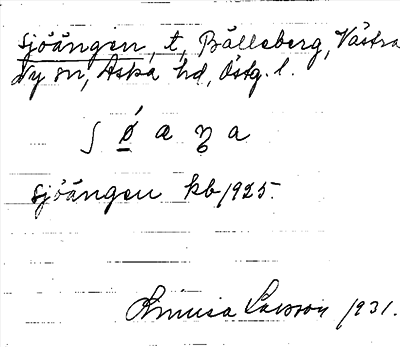 Sjöängen, t, Bålleberg, Västra
Ny sn, Aska hd, Östg. l.
ʃ ǿ æ ŋ a
Sjöängen kb 1925.
Linnea Larsson 1931.